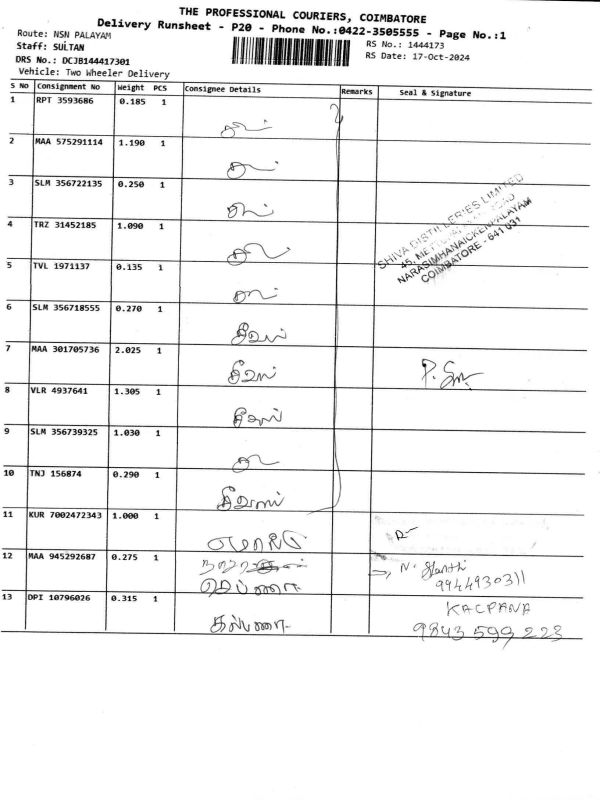 THE PROFESSIONAL COURIERS, COIMBATORE
Delivery Runsheet - P20 - Phone No.:0422-3505555 - Page No.:1
Route: NSN PALAYAM
RS No.: 1444173
Staff: SULTAN
RS Date: 17-Oct-2024
DRS No.: DCJB144417301
Vehicle: Two Wheeler Delivery
S No Consignment No Weight PCS Consignee Details Remarks Seal & Signature
1 RPT 3593686 0.185 1
2 MAA 575291114 1.190 1
3 SLM 356722135 0.250 1
4 TRZ 31452185 1.090 1
SHIVA DISTILLERIES LIMITED
NARASIMHANAICKENPALAYAM
COIMBATORE - 641 031
5 TVL 1971137 0.135 1
6 SLM 356718555 0.270 1
7 MAA 301705736 2.025 1
8 VLR 4937641 1.305 1
9 SLM 356739325 1.030 1
10 TNJ 156874 0.290 1
11 KUR 7002472343 1.000 1
12 MAA 945292687 0.275 1
9944930311
13 DPI 10796026 0.315 1 கல்பனா KALPANA
9843 599 223